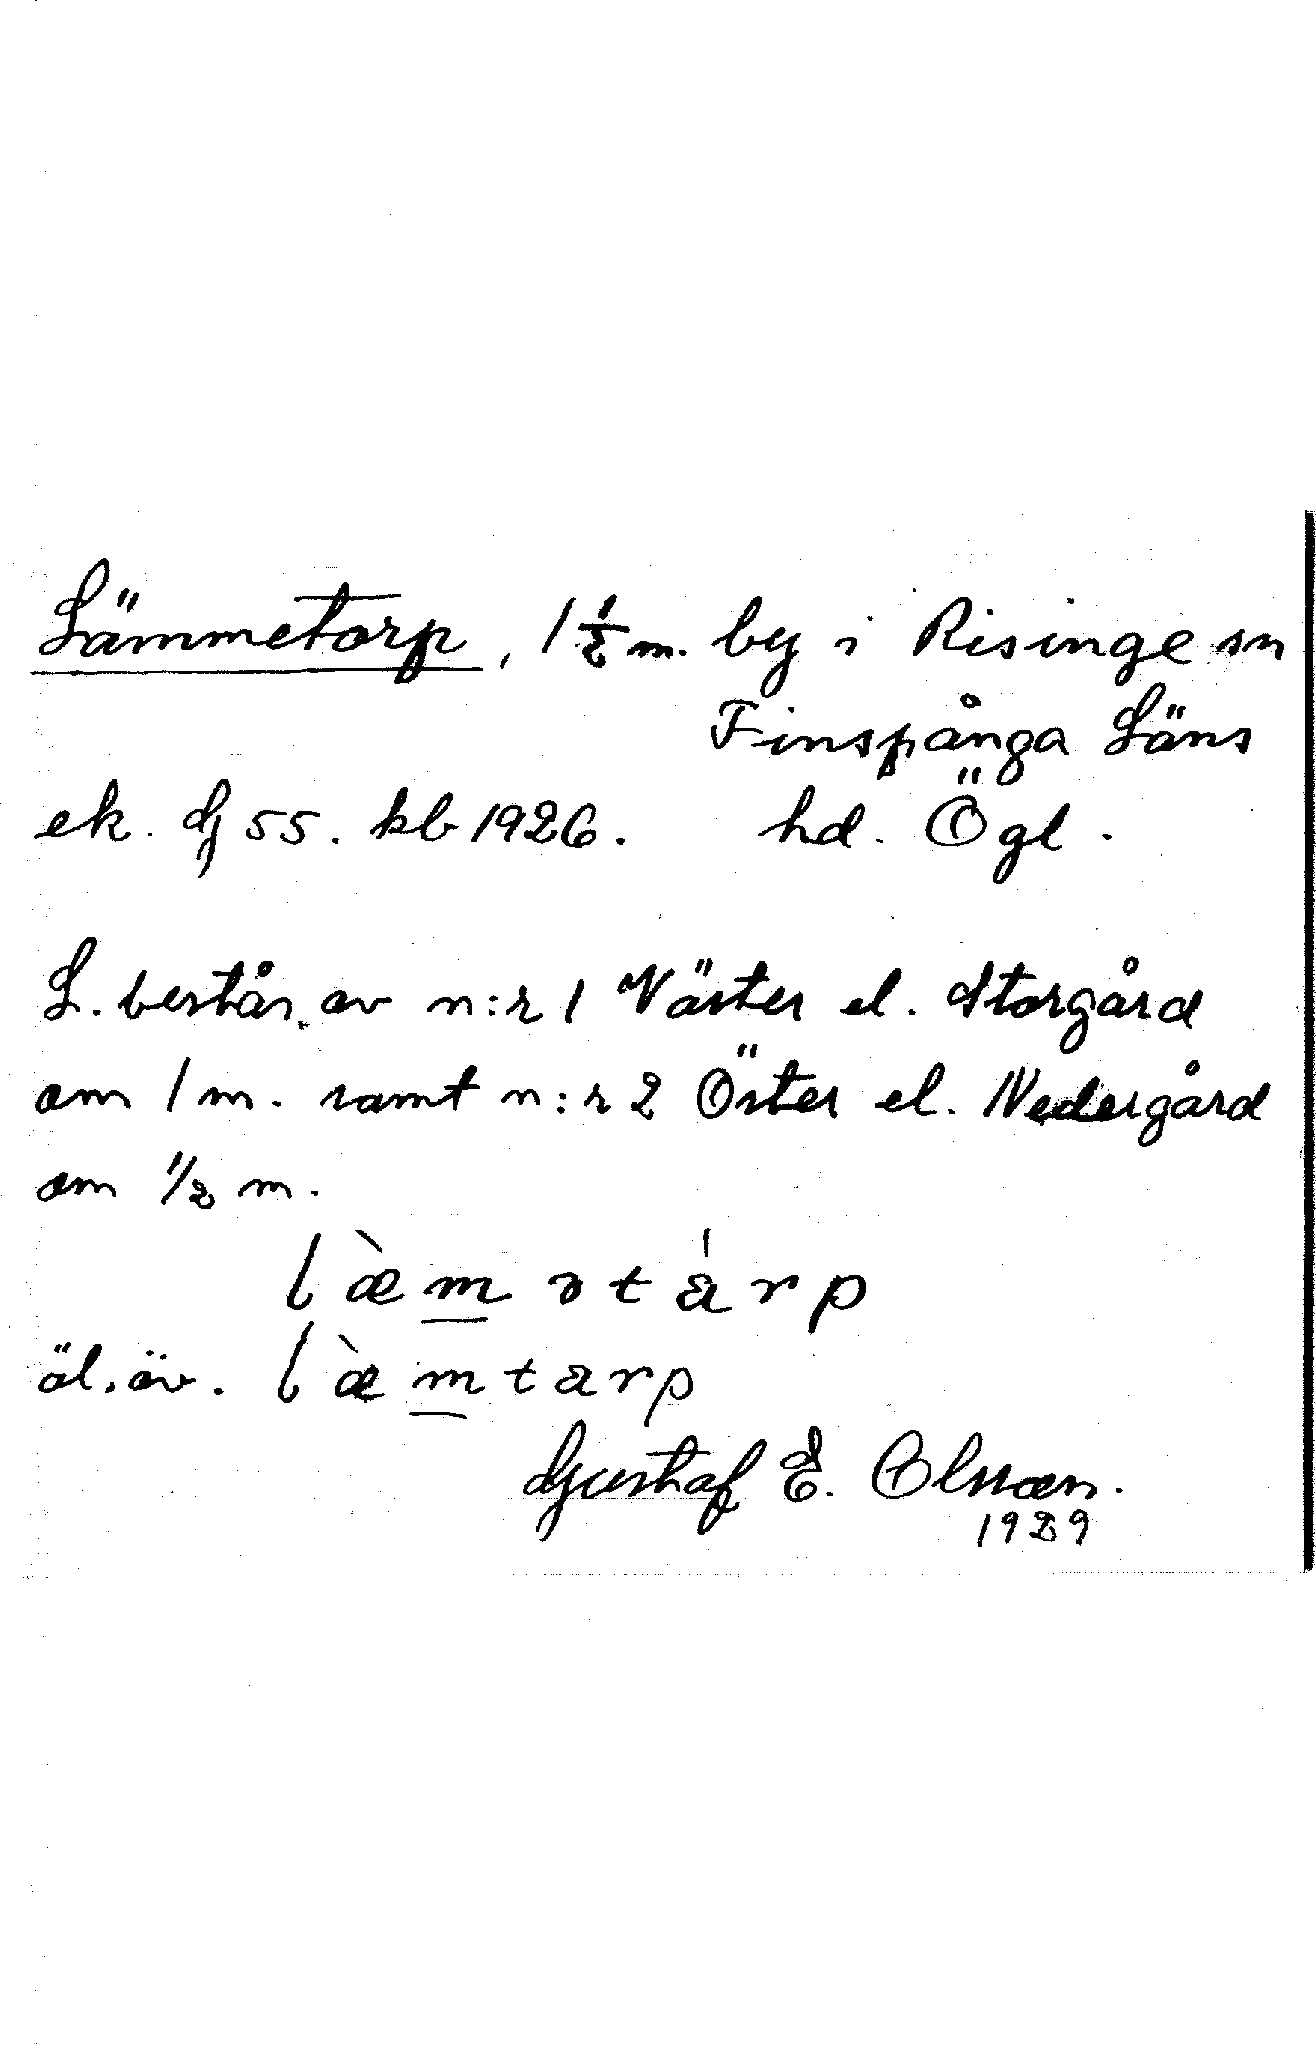 Lämmetorp, 1 1/2 m. by i Risinge sn
Finspånga Läns
ek. dj 55. kb 1926. hd. Ögl.
L. består av n:r 1 Väster el. Storgård
om 1 m. samt n:r 2 Öster el. Nedergård
om 1/2 m.
læ̀m̲ətàrp
äl. äv. læ̀m̲tarp
Gustaf E. Olsson.
1929